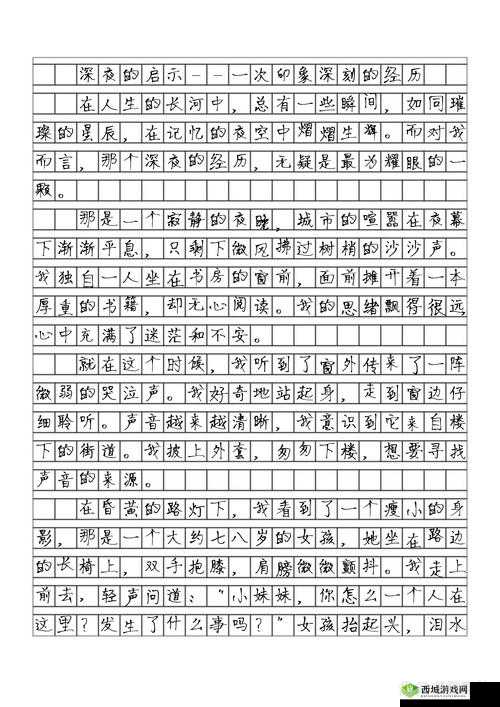 深夜的启示--一次印象深刻的经历
在人生的长河中，总有一些瞬间，如同璀
璨的星辰，在记忆的夜空中熠熠生辉。而对我
而言，那个深夜的经历，无疑是最为耀眼的一
颗。
那是一个寂静的夜晚，城市的喧嚣在夜幕
下渐渐平息，只剩下微风拂过树梢的沙沙声。
我独自一人坐在书房的窗前，面前摊开着一本
厚重的书籍，却无心阅读。我的思绪飘得很远
心中充满了迷茫和不安。
就在这个时候，我听到了窗外传来了一阵
微弱的哭泣声。我好奇地站起身，走到窗边仔
细聆听。声音越来越清晰，我意识到它来自楼
下的街道。我披上外套，匆匆下楼，想要寻找
声音的来源。
在昏黄的路灯下，我看到了一个瘦小的身
影，那是一个大约七八岁的女孩，她坐在路边
的长椅上，双手抱膝，肩膀微微颤抖。我走上
前去，轻声问道：“小妹妹，你怎么一个人在
这里？发生了什么事吗？”女孩抬起头，泪水
西城游戏网